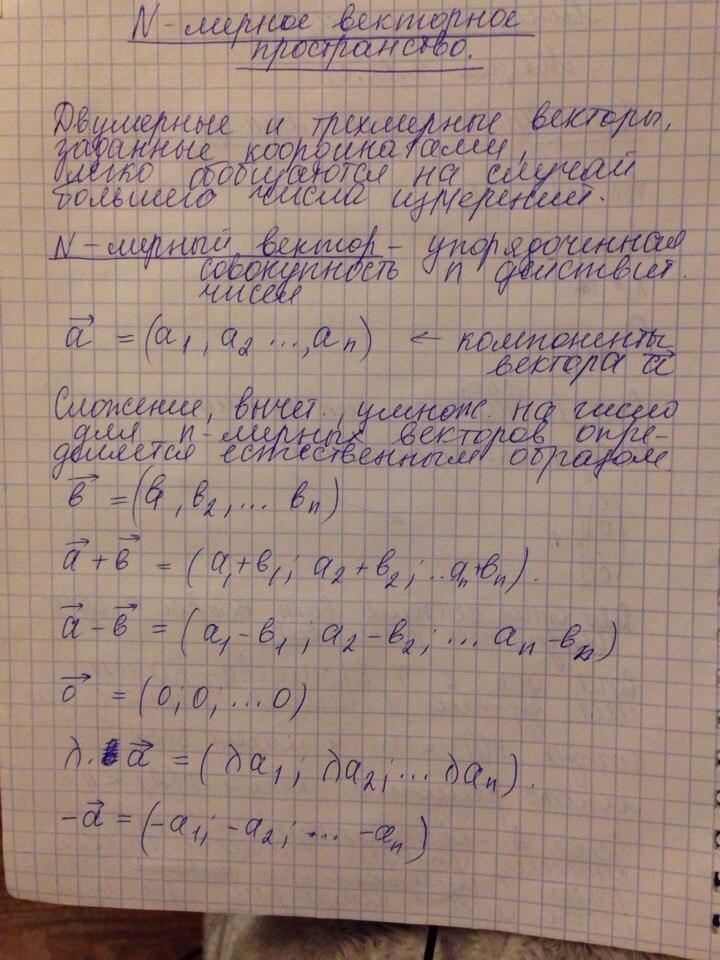 N-мерное векторное
пространство.
Двумерные и трехмерные векторы,
заданные координатами,
легко обобщаются на случай
большего числа измерений.
N-мерный вектор - упорядоченная
совокупность n действит.
чисел
a⃗ = (a₁, a₂ ..., aₙ) ← компоненты
вектора a⃗
Сложение, вычет., умнож. на число
для n-мерных векторов опре-
деляется естественным образом
b⃗ = (b, b₂, ... bₙ)
a⃗ + b⃗ = (a₁+b₁; a₂+b₂; ..aₙ+bₙ).
a⃗ - b⃗ = (a₁-b₁; a₂-b₂; ... aₙ-bₙ)
0⃗ = (0; 0; ... 0)
λ. a⃗ = (λa₁; λa₂; ... λaₙ).
-a⃗ = (-a₁; -a₂; ... -aₙ)